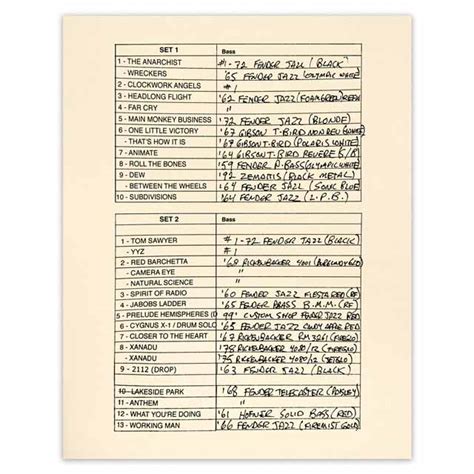 SET 1 Bass
1 - THE ANARCHIST #1-72 FENDER JAZZ (BLACK)
- WRECKERS '65 FENDER JAZZ (OLYMPIC WHITE)
2 - CLOCKWORK ANGELS #1
3 - HEADLONG FLIGHT '62 FENDER JAZZ (FOAM GREEN)
4 - FAR CRY " "
5 - MAIN MONKEY BUSINESS '72 FENDER JAZZ (BLONDE)
6 - ONE LITTLE VICTORY '67 GIBSON T-BIRD NON REV
- THAT'S HOW IT IS '69 GIBSON T-BIRD (POLARIS WHITE)
7 - ANIMATE '64 GIBSON T-BIRD REVERE S/B
8 - ROLL THE BONES FENDER P-BASS (OLYMPIC WHITE)
9 - DEW '92 ZEMAITIS (BLACK METAL)
- BETWEEN THE WHEELS '64 FENDER JAZZ (SONIC BLUE
10 - SUBDIVISIONS '64 FENDER JAZZ (L.P.B.)
SET 2 Bass
1 - TOM SAWYER #1-72 FENDER JAZZ (BLACK)
- YYZ #1
2 - RED BARCHETTA '68 RICKENBACKER 4001
- CAMERA EYE " "
- NATURAL SCIENCE " "
3 - SPIRIT OF RADIO '60 FENDER JAZZ FIESTA RED
4 - JABOBS LADDER '65 FENDER BASS B.M.M.
5 - PRELUDE HEMISPHERES (D CUSTOM SHOP FENDER JAZZ RED
6 - CYGNUS X-1 / DRUM SOLO '65 FENDER JAZZ CANDY APPLE RED
7 - CLOSER TO THE HEART '67 RICKENBACKER
8 - XANADU '78 RICKENBACKER 4080/12
- XANADU '75 RICKENBACKER 4080/12
9 - 2112 (DROP) '63 FENDER JAZZ (BLACK)
10 - LAKESIDE PARK '68 FENDER TELECASTER (PAISLEY)
11 - ANTHEM " "
12 - WHAT YOU'RE DOING '61 HOFNER SOLID BASS (RED)
13 - WORKING MAN '66 FENDER JAZZ (FIREMIST GOLD)